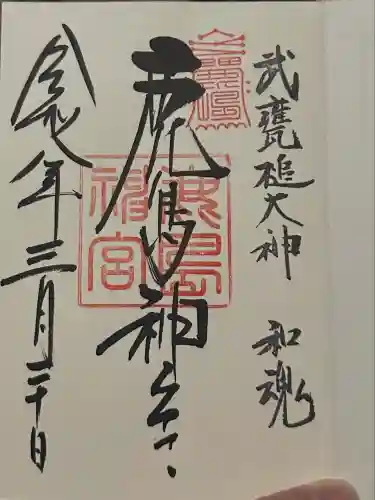 武甕槌大神 和魂
鹿島神宮
鹿島
神宮
年三月二十日